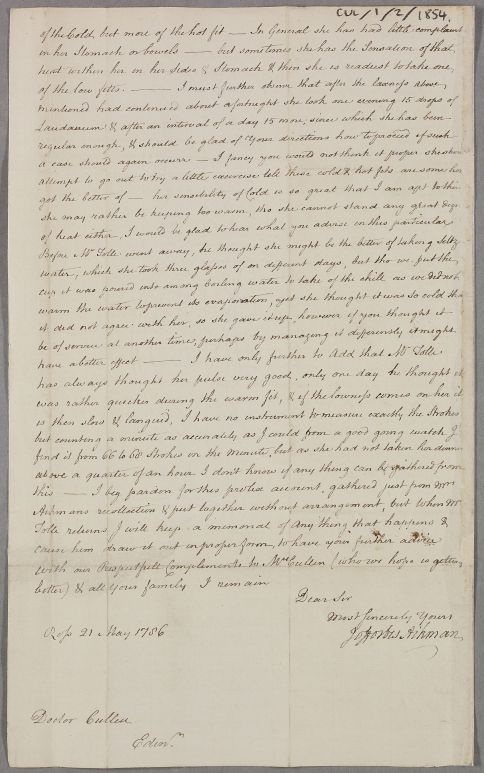 CUL/1/2/1854.
of the Cold, but more of the hot fit — In General she has had little complaint
in her Stomach or bowels — but sometimes she has the Sensation of that
heat within her in her Sides & Stomach & then she is readiest to take one
of the low fitts. — I must further observe that after the laxness above
mentioned had continued about a fortnight she took one evening 15 drops of
Laudanum & after an interval of a day 15 more, since which she has been
regular enough, & should be glad of your directions how to proceed if such
a case should again occurr — I fancy you would not think it proper she should
attempt to go out to try a little excercise till these cold & hot fits are some how
got the better of — her sensibility of Cold is so great that I am apt to think
she may rather be keeping too warm, tho she cannot stand any great degree
of heat either, I would be glad to hear what you advise in this particular
Before Mr Tolle went away, he thought she might be the better of taking Seltzer
water, which she took three glasses of on different days, but tho we put the
cup it was poured into among boiling water to take of the chill as we did not
warm the water to prevent its evaporation, yet she thought it was so cold that
it did not agree with her, so she gave it up, however if you thought it
be of service at another time, perhaps by managing it differently it might
have a better effect — I have only further to Add that Mr Tolle
has always thought her pulse very good, only one day he thought it
was rather quicker during the warm fit, & if the lowness comes on her it
is then slow & languid, I have no instrument to measure exactly the Strokes
but counting a minute as accurately as I could from a good going watch I
find it from 66 to 60 Strokes on the Minute, but as she had not taken her dinner
above a quarter of an hour I don't know if any thing can be gathered from
this — I beg pardon for this prolix account, gathered just from Mrs
Aikmans recollection & put together without arrangement, but when Mr
Tolle returns I will keep a memorial of any thing that happens &
cause him draw it out in proper form, to have your further advice
With our Respectfull Compliments to Mrs Cullen (who we hope is getting
better) & all your family I remain
Dear Sir
Most Sincerely Yours
Jo Forbes Aikman
Ross 21 May 1786
Doctor Cullen
Edinr.